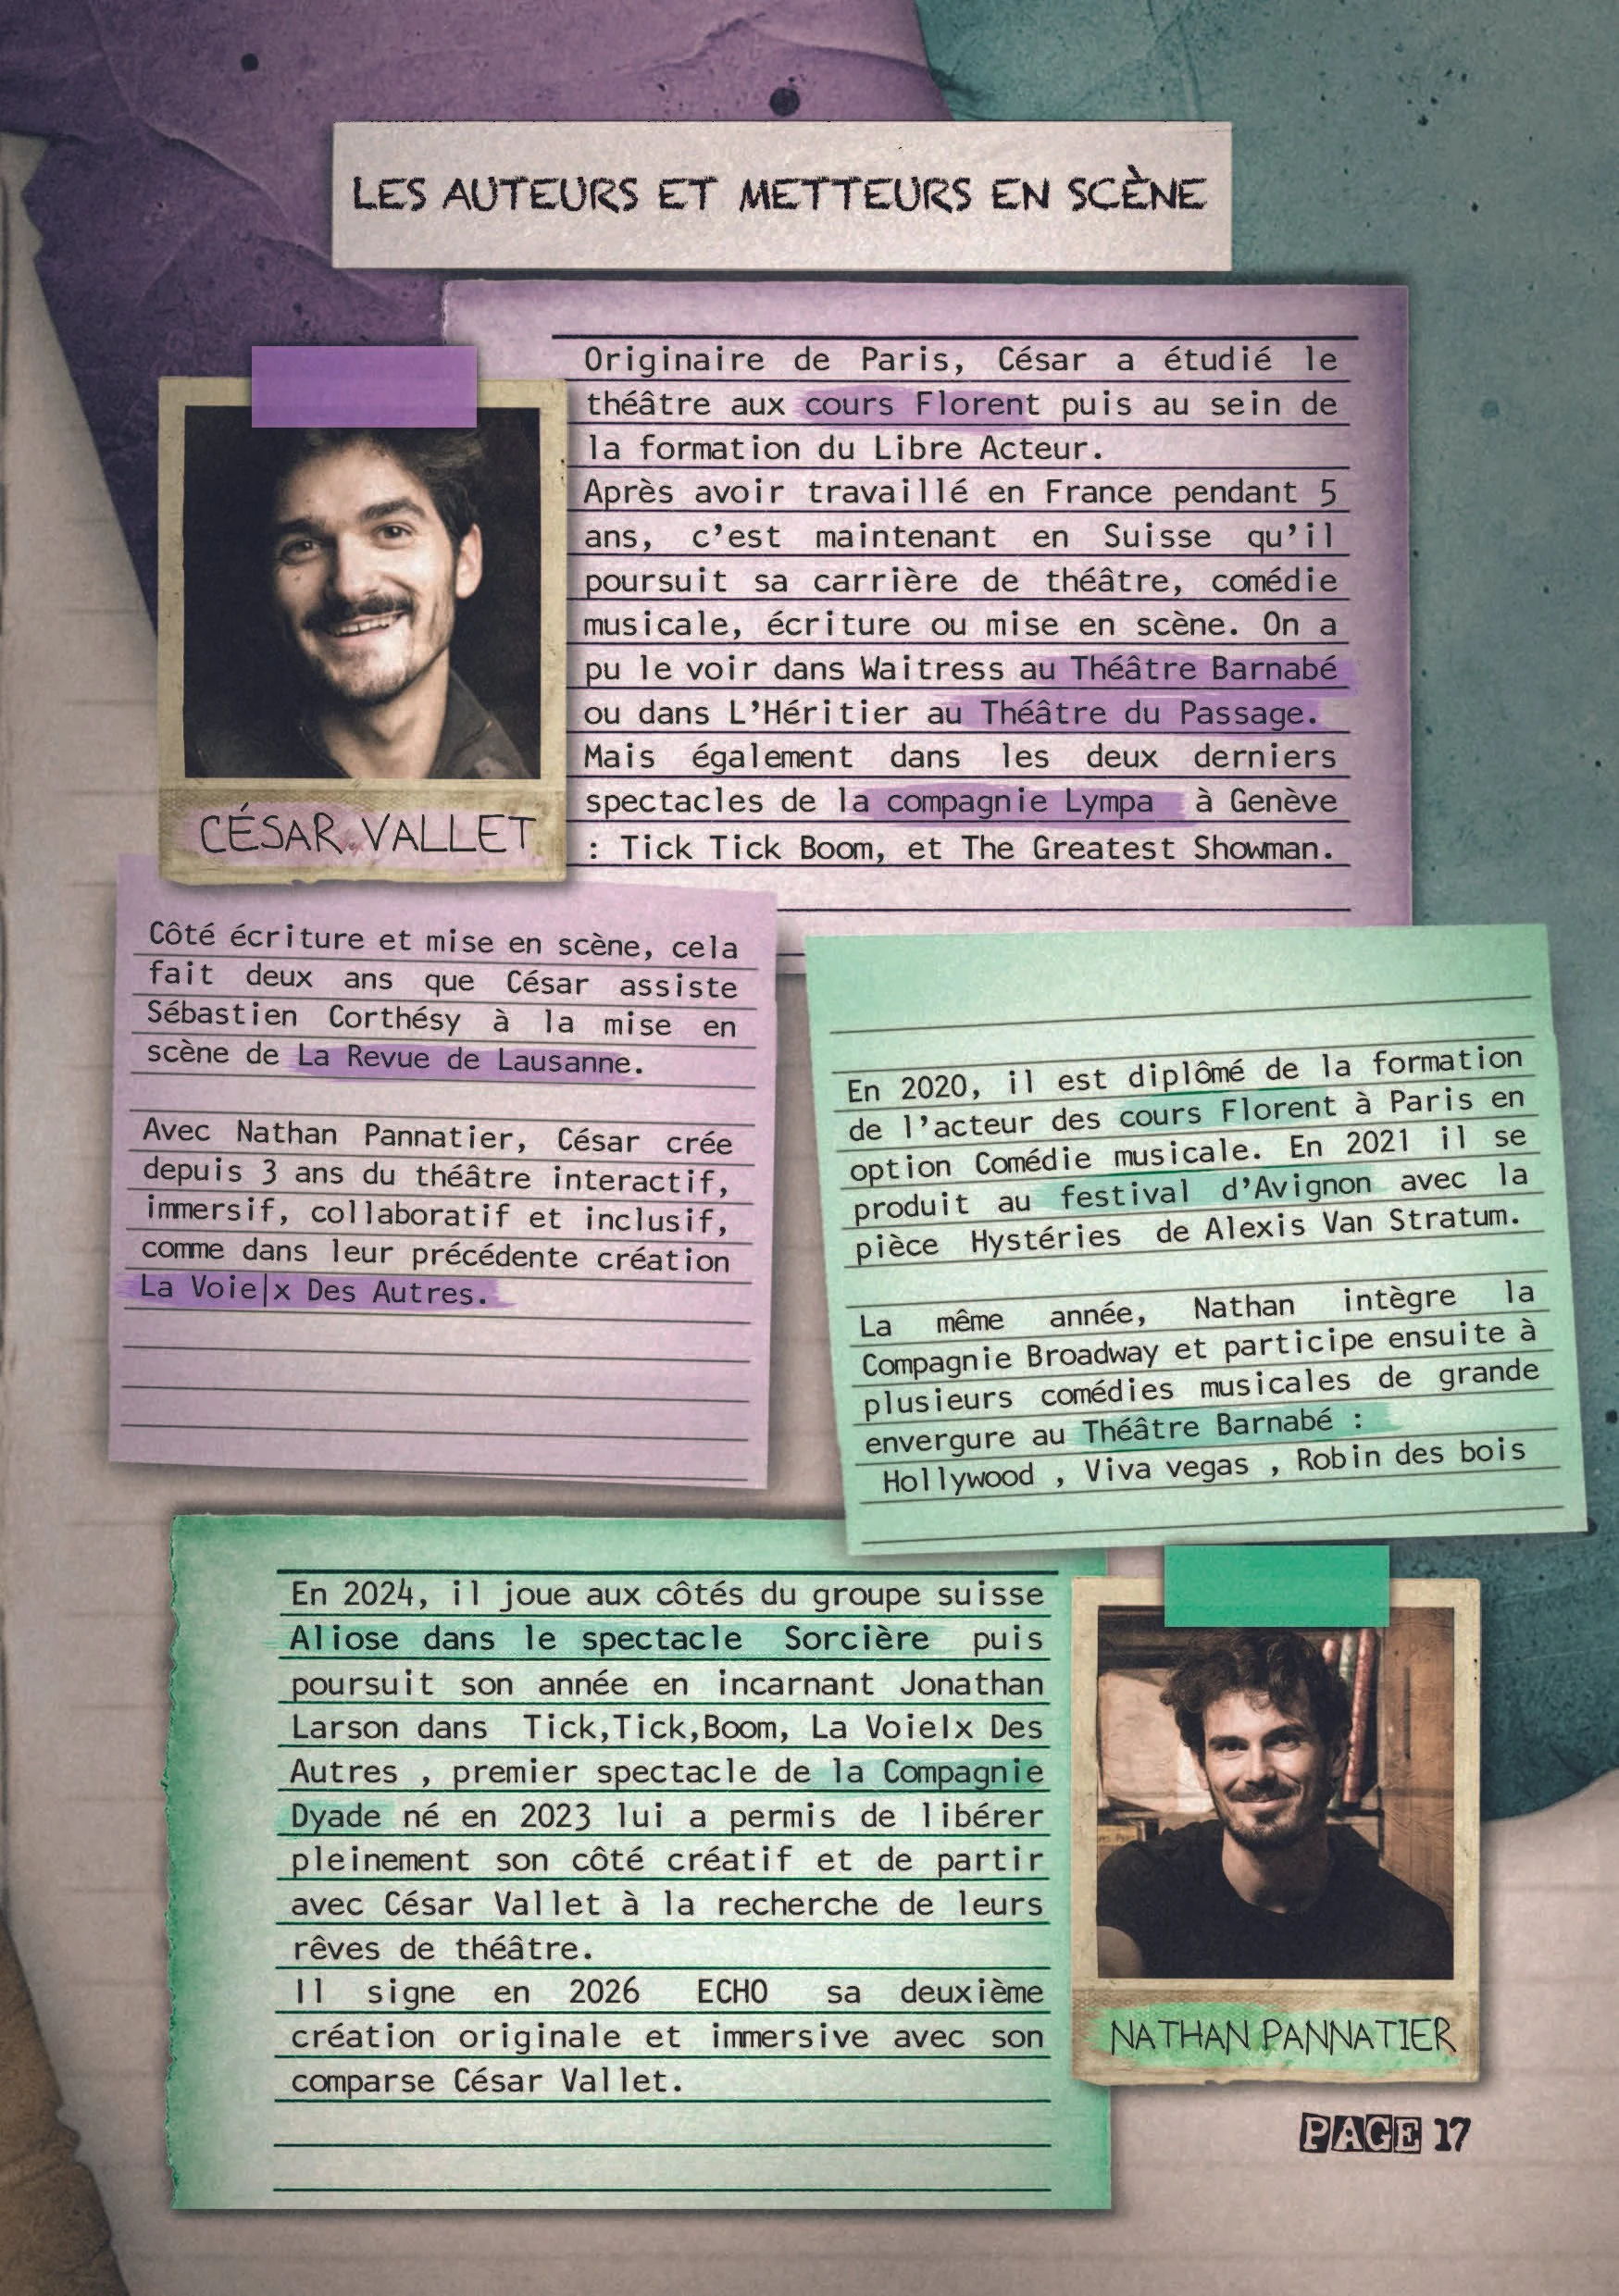 LES AUTEURS ET METTEURS EN SCÈNE
Originaire de Paris, César a étudié le
théâtre aux cours Florent puis au sein de
la formation du Libre Acteur.
Après avoir travaillé en France pendant 5
ans, c’est maintenant en Suisse qu’il
poursuit sa carrière de théâtre, comédie
musicale, écriture ou mise en scène. On a
pu le voir dans Waitress au Théâtre Barnabé
ou dans L’Héritier au Théâtre du Passage.
Mais également dans les deux derniers
spectacles de la compagnie Lympa à Genève
: Tick Tick Boom, et The Greatest Showman.
CÉSAR VALLET
Côté écriture et mise en scène, cela
fait deux ans que César assiste
Sébastien Corthésy à la mise en
scène de La Revue de Lausanne.
Avec Nathan Pannatier, César crée
depuis 3 ans du théâtre interactif,
immersif, collaboratif et inclusif,
comme dans leur précédente création
La Voie|x Des Autres.
En 2020, il est diplômé de la formation
de l’acteur des cours Florent à Paris en
option Comédie musicale. En 2021 il se
produit au festival d’Avignon avec la
pièce Hystéries de Alexis Van Stratum.
La même année, Nathan intègre la
Compagnie Broadway et participe ensuite à
plusieurs comédies musicales de grande
envergure au Théâtre Barnabé :
Hollywood , Viva vegas , Robin des bois
En 2024, il joue aux côtés du groupe suisse
Aliose dans le spectacle Sorcière puis
poursuit son année en incarnant Jonathan
Larson dans Tick,Tick,Boom, La VoieIx Des
Autres , premier spectacle de la Compagnie
Dyade né en 2023 lui a permis de libérer
pleinement son côté créatif et de partir
avec César Vallet à la recherche de leurs
rêves de théâtre.
Il signe en 2026 ECHO sa deuxième
création originale et immersive avec son
comparse César Vallet.
NATHAN PANNATIER
PAGE 17